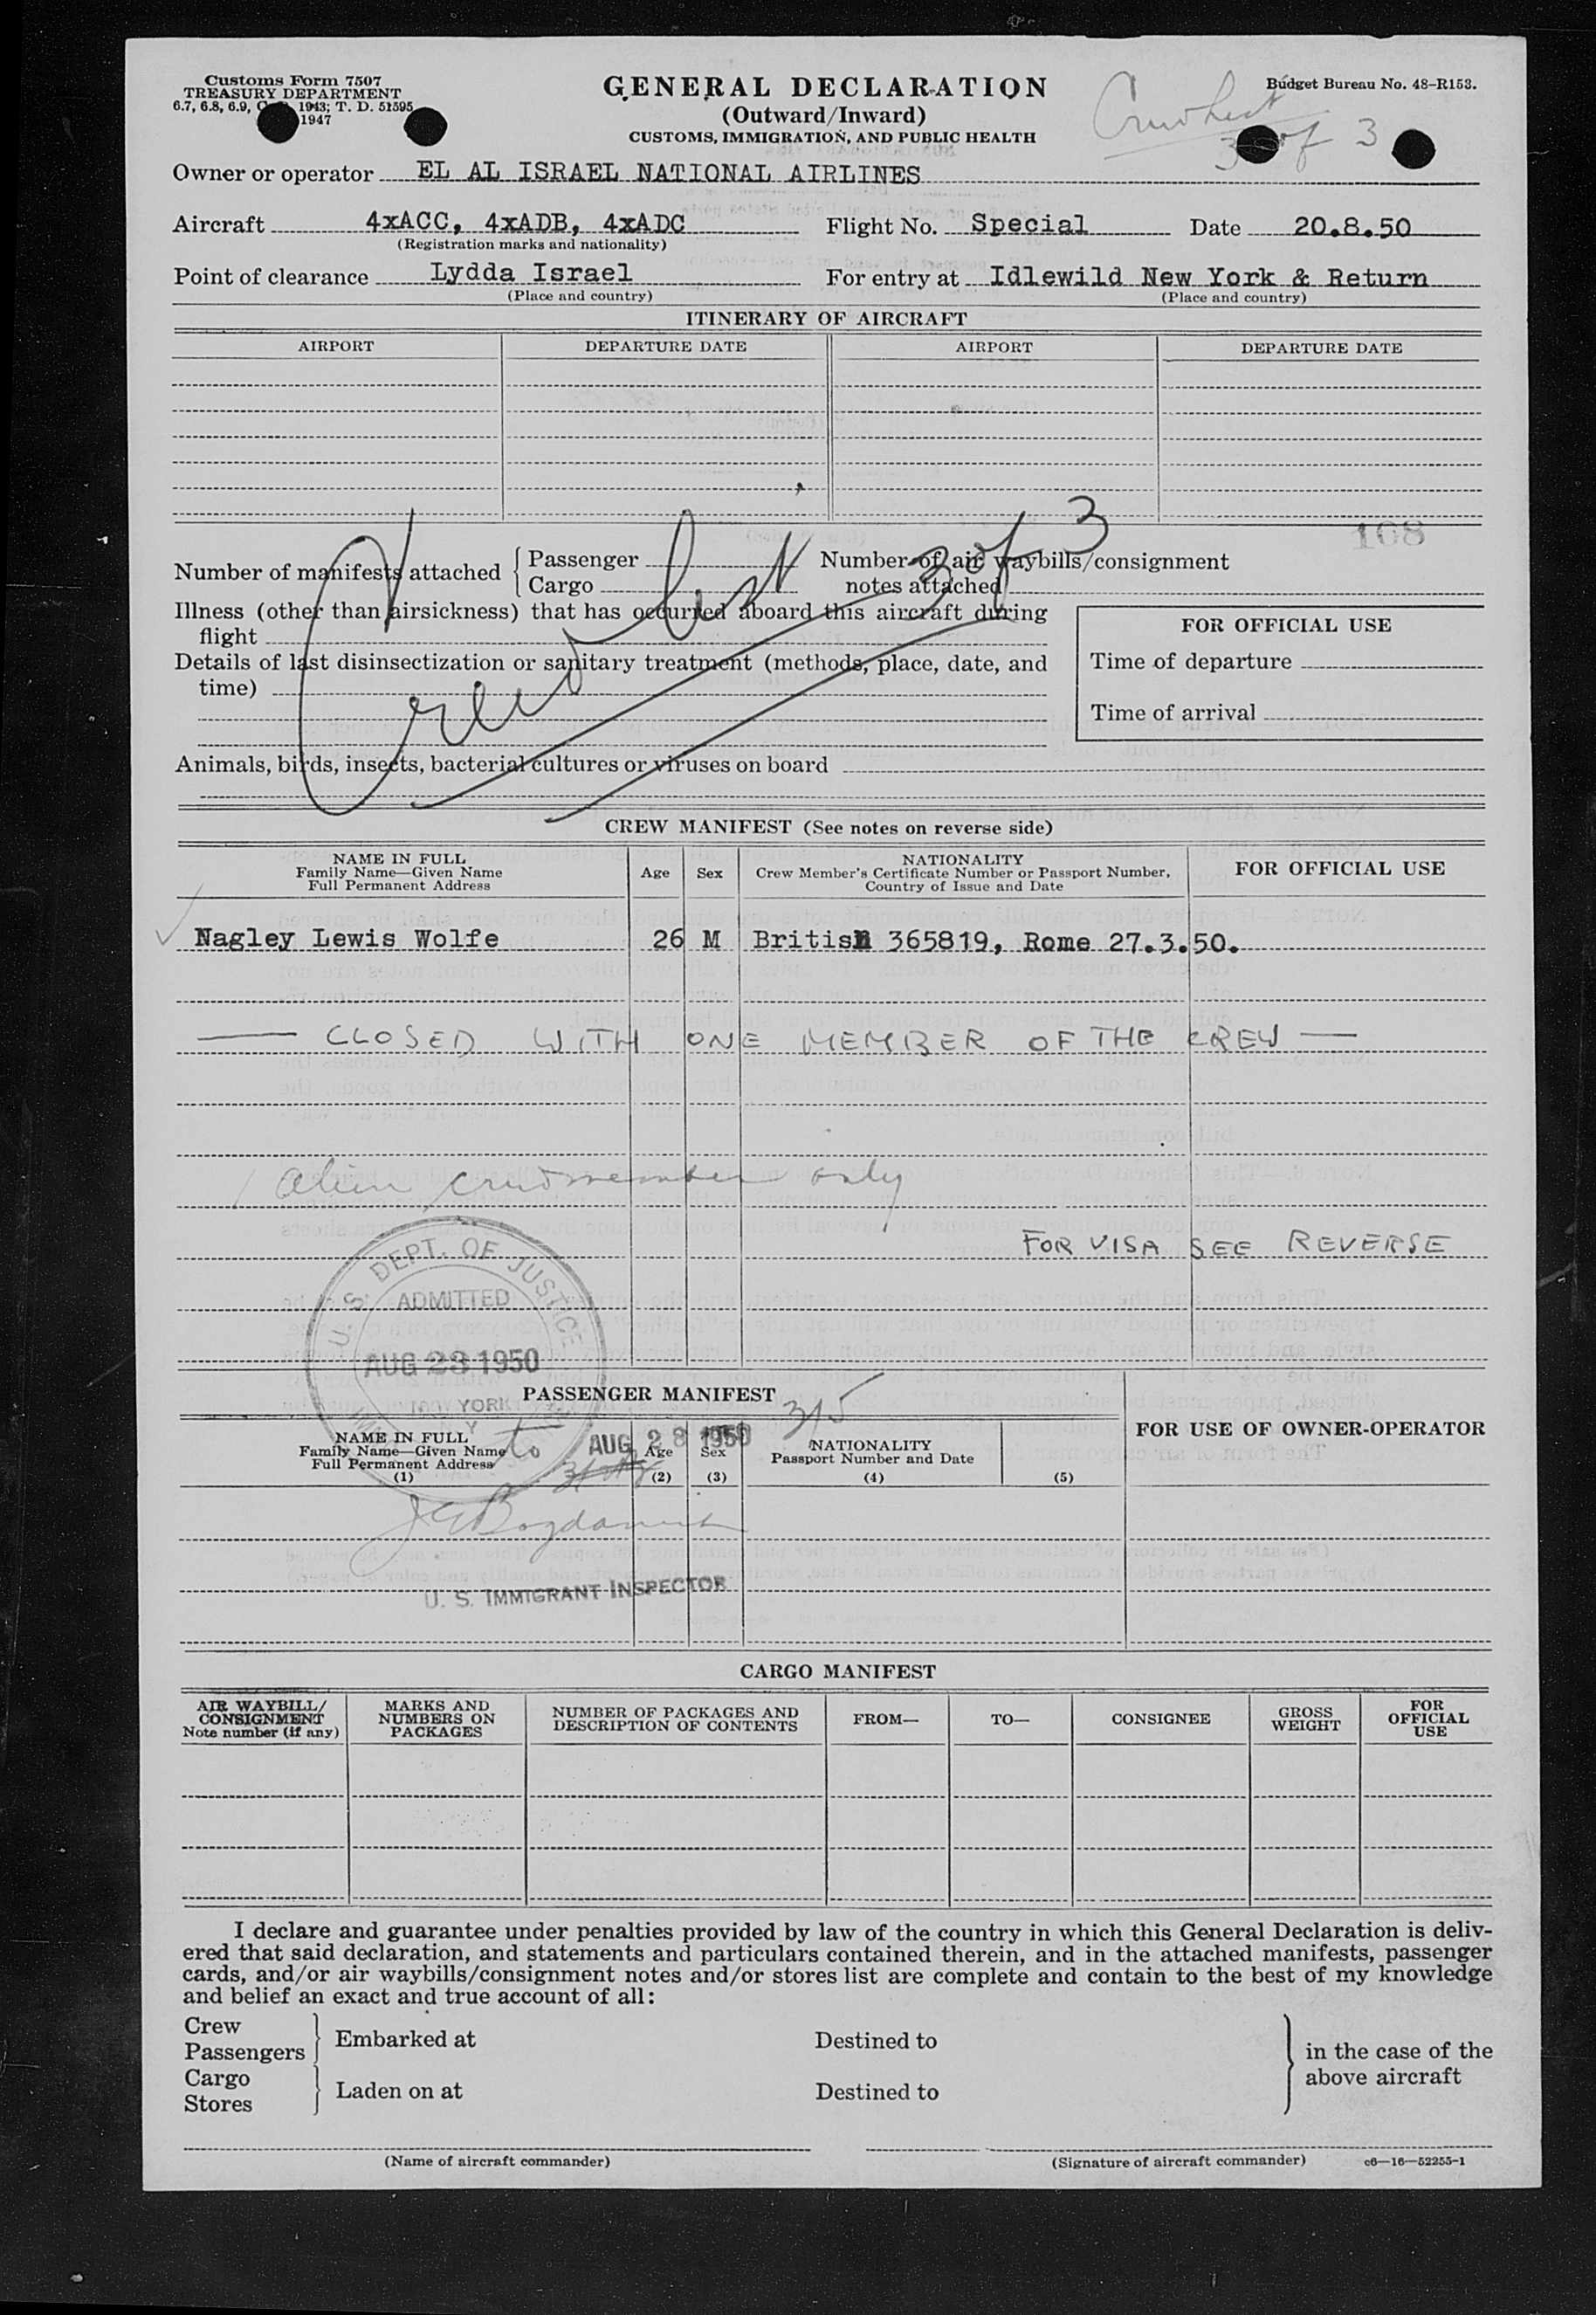 Customs Form 7507
TREASURY DEPARTMENT
6.7, 6.8, 6.9, 1943; T. D. 51595
1947
GENERAL DECLARATION
(Outward/Inward)
CUSTOMS, IMMIGRATION, AND PUBLIC HEALTH
Budget Bureau No. 48-R153.
Crew list
3 of 3
Owner or operator EL AL ISRAEL NATIONAL AIRLINES
Aircraft 4xACC, 4xADB, 4xADC Flight No. Special Date 20.8.50
(Registration marks and nationality)
Point of clearance Lydda Israel For entry at Idlewild New York & Return
(Place and country) (Place and country)
ITINERARY OF AIRCRAFT
AIRPORT DEPARTURE DATE AIRPORT DEPARTURE DATE
108
Crew list 3 of 3
Number of manifests attached { Passenger Number of air waybills/consignment
Cargo notes attached
Illness (other than airsickness) that has occurred aboard this aircraft during
flight
Details of last disinsectization or sanitary treatment (methods, place, date, and
time)
FOR OFFICIAL USE
Time of departure
Time of arrival
Animals, birds, insects, bacterial cultures or viruses on board
CREW MANIFEST (See notes on reverse side)
NAME IN FULL
Family Name—Given Name
Full Permanent Address
Age
Sex
NATIONALITY
Crew Member's Certificate Number or Passport Number,
Country of Issue and Date
FOR OFFICIAL USE
Nagley Lewis Wolfe 26 M British 365819, Rome 27.3.50.
— CLOSED WITH ONE MEMBER OF THE CREW —
1 alien crewmember only
FOR VISA SEE REVERSE
U. S. DEPT. OF JUSTICE
ADMITTED
AUG 23 1950
YORK
PASSENGER MANIFEST
315
to AUG 28 1950
NAME IN FULL
Family Name—Given Name
Full Permanent Address
(1)
Age
(2)
Sex
(3)
NATIONALITY
Passport Number and Date
(4)
(5)
FOR USE OF OWNER-OPERATOR
U. S. IMMIGRANT INSPECTOR
CARGO MANIFEST
AIR WAYBILL/
CONSIGNMENT
Note number (if any)
MARKS AND
NUMBERS ON
PACKAGES
NUMBER OF PACKAGES AND
DESCRIPTION OF CONTENTS
FROM—
TO—
CONSIGNEE
GROSS
WEIGHT
FOR
OFFICIAL
USE
I declare and guarantee under penalties provided by law of the country in which this General Declaration is deliv-
ered that said declaration, and statements and particulars contained therein, and in the attached manifests, passenger
cards, and/or air waybills/consignment notes and/or stores list are complete and contain to the best of my knowledge
and belief an exact and true account of all:
Crew
Passengers } Embarked at Destined to
Cargo
Stores } Laden on at Destined to
} in the case of the
above aircraft
(Name of aircraft commander) (Signature of aircraft commander) c6—16—52255-1